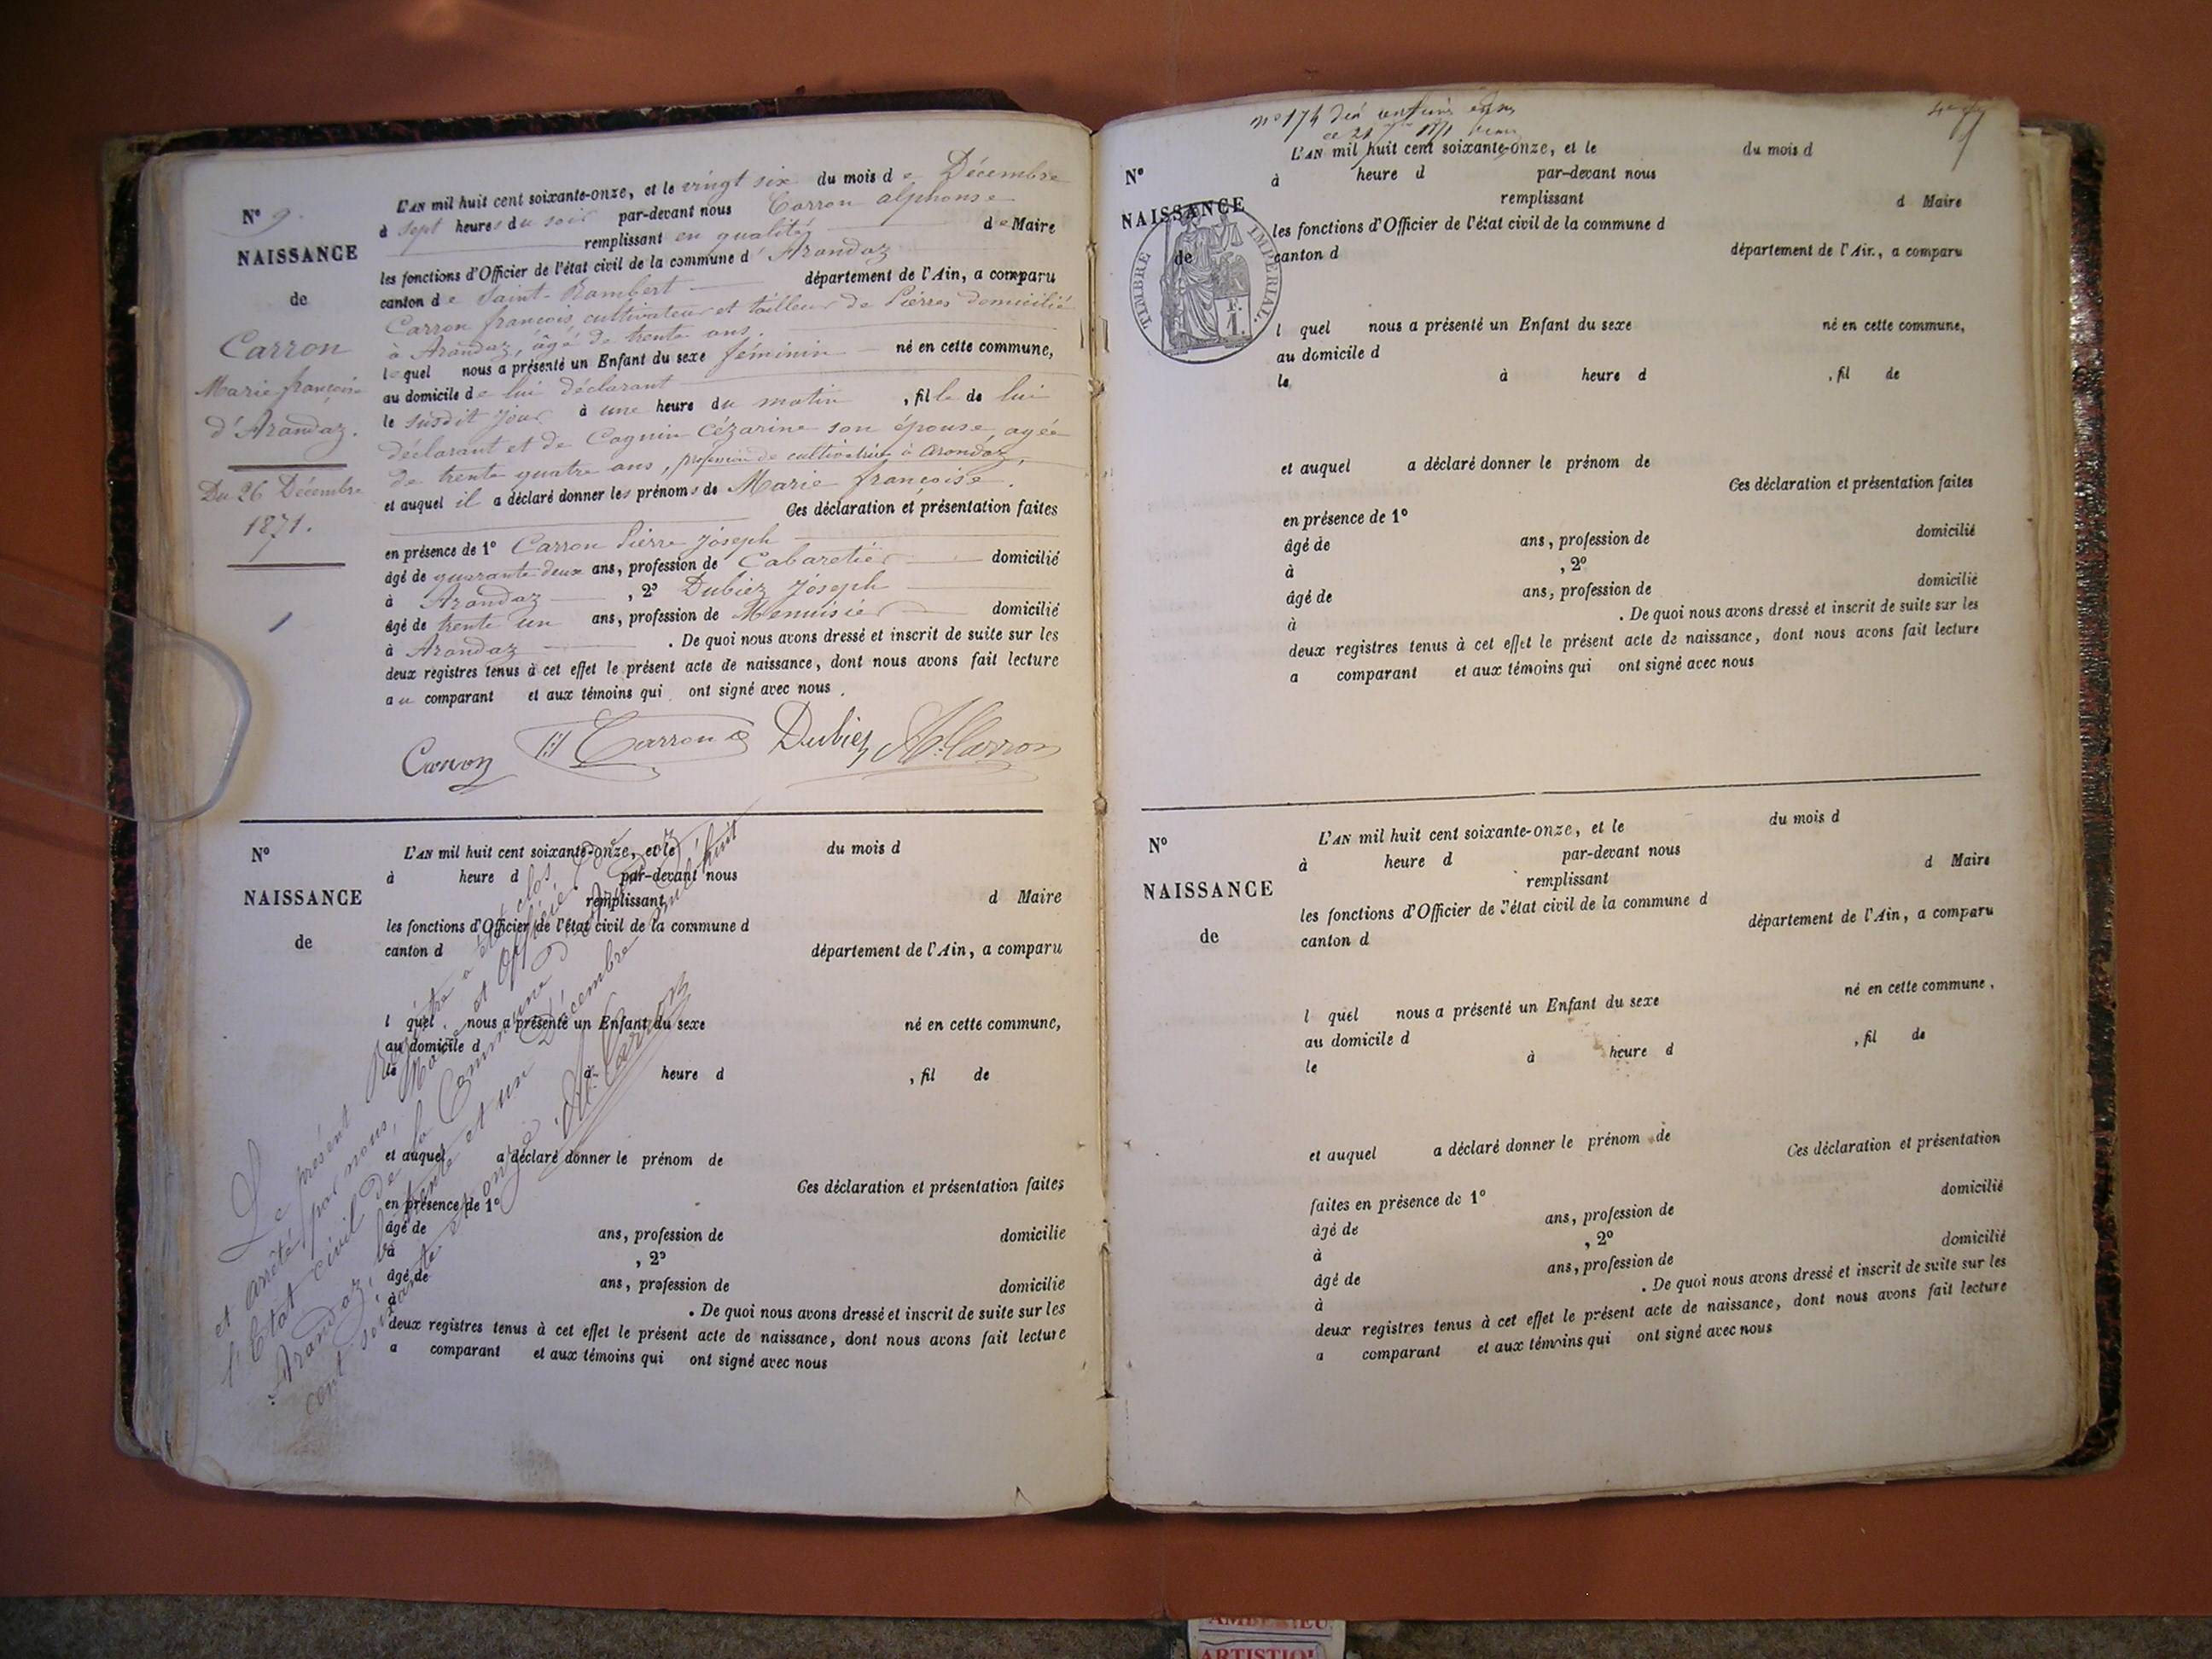 N° 9.
NAISSANCE
de
Carron
Marie françoise
d'Arandaz.
Du 26 Décembre
1871.
L'AN mil huit cent soixante-onze, et le vingt six du mois de Décembre
à sept heures du soir par-devant nous Carron alphonse
remplissant en qualité de Maire
les fonctions d'Officier de l'état civil de la commune d'Arandaz
canton de Saint-Rambert département de l'Ain, a comparu
Carron françois cultivateur et tailleur de Pierres domicilié
à Arandaz, âgé de trente ans.
lequel nous a présenté un Enfant du sexe féminin né en cette commune,
au domicile de lui déclarant
le susdit jour à une heure du matin, fille de lui
déclarant et de Cognin Cézarine son épouse agée
de trente quatre ans, profession de cultivatrice à Arandaz,
et auquel il a déclaré donner les prénoms de Marie françoise.
Ces déclaration et présentation faites
en présence de 1° Carron Pierre joseph
âgé de quarante deux ans, profession de Cabaretier domicilié
à Arandaz, 2° Dubiez Joseph
âgé de trente un ans, profession de Menuisier domicilié
à Arandaz. De quoi nous avons dressé et inscrit de suite sur les
deux registres tenus à cet effet le présent acte de naissance, dont nous avons fait lecture
au comparant et aux témoins qui ont signé avec nous.
Carron Carron Dubiez A. Carron
N°
NAISSANCE
de
L'AN mil huit cent soixante-onze, et le du mois d
à heure d par-devant nous
remplissant d Maire
les fonctions d'Officier de l'état civil de la commune d
canton d département de l'Ain, a comparu
l quel nous a présenté un Enfant du sexe né en cette commune,
au domicile d
le à heure d , fil de
et auquel a déclaré donner le prénom de
Ces déclaration et présentation faites
en présence de 1°
âgé de ans, profession de domicilié
à , 2°
âgé de ans, profession de domicilié
à . De quoi nous avons dressé et inscrit de suite sur les
deux registres tenus à cet effet le présent acte de naissance, dont nous avons fait lecture
a comparant et aux témoins qui ont signé avec nous
Le présent Registre a été clos
et arrêté par nous, Maire et Officier de
l'Etat civil de la Commune d'
Arandaz, le trente et un Décembre mil huit
cent soixante et onze
A. Carron
n° 174
N°
NAISSANCE
de
TIMBRE IMPERIAL.
F.
1.
L'AN mil huit cent soixante-onze, et le du mois d
à heure d par-devant nous
remplissant d Maire
les fonctions d'Officier de l'état civil de la commune d
canton d département de l'Ain, a comparu
l quel nous a présenté un Enfant du sexe né en cette commune,
au domicile d
le à heure d , fil de
et auquel a déclaré donner le prénom de
Ces déclaration et présentation faites
en présence de 1°
âgé de ans, profession de domicilié
à , 2°
âgé de ans, profession de domicilié
à . De quoi nous avons dressé et inscrit de suite sur les
deux registres tenus à cet effet le présent acte de naissance, dont nous avons fait lecture
a comparant et aux témoins qui ont signé avec nous
N°
NAISSANCE
de
L'AN mil huit cent soixante-onze, et le du mois d
à heure d par-devant nous
remplissant d Maire
les fonctions d'Officier de l'état civil de la commune d
canton d département de l'Ain, a comparu
l quel nous a présenté un Enfant du sexe né en cette commune,
au domicile d
le à heure d , fil de
et auquel a déclaré donner le prénom de
Ces déclaration et présentation
faites en présence de 1° domicilié
âgé de ans, profession de
à , 2° domicilié
âgé de ans, profession de
à . De quoi nous avons dressé et inscrit de suite sur les
deux registres tenus à cet effet le présent acte de naissance, dont nous avons fait lecture
a comparant et aux témoins qui ont signé avec nous